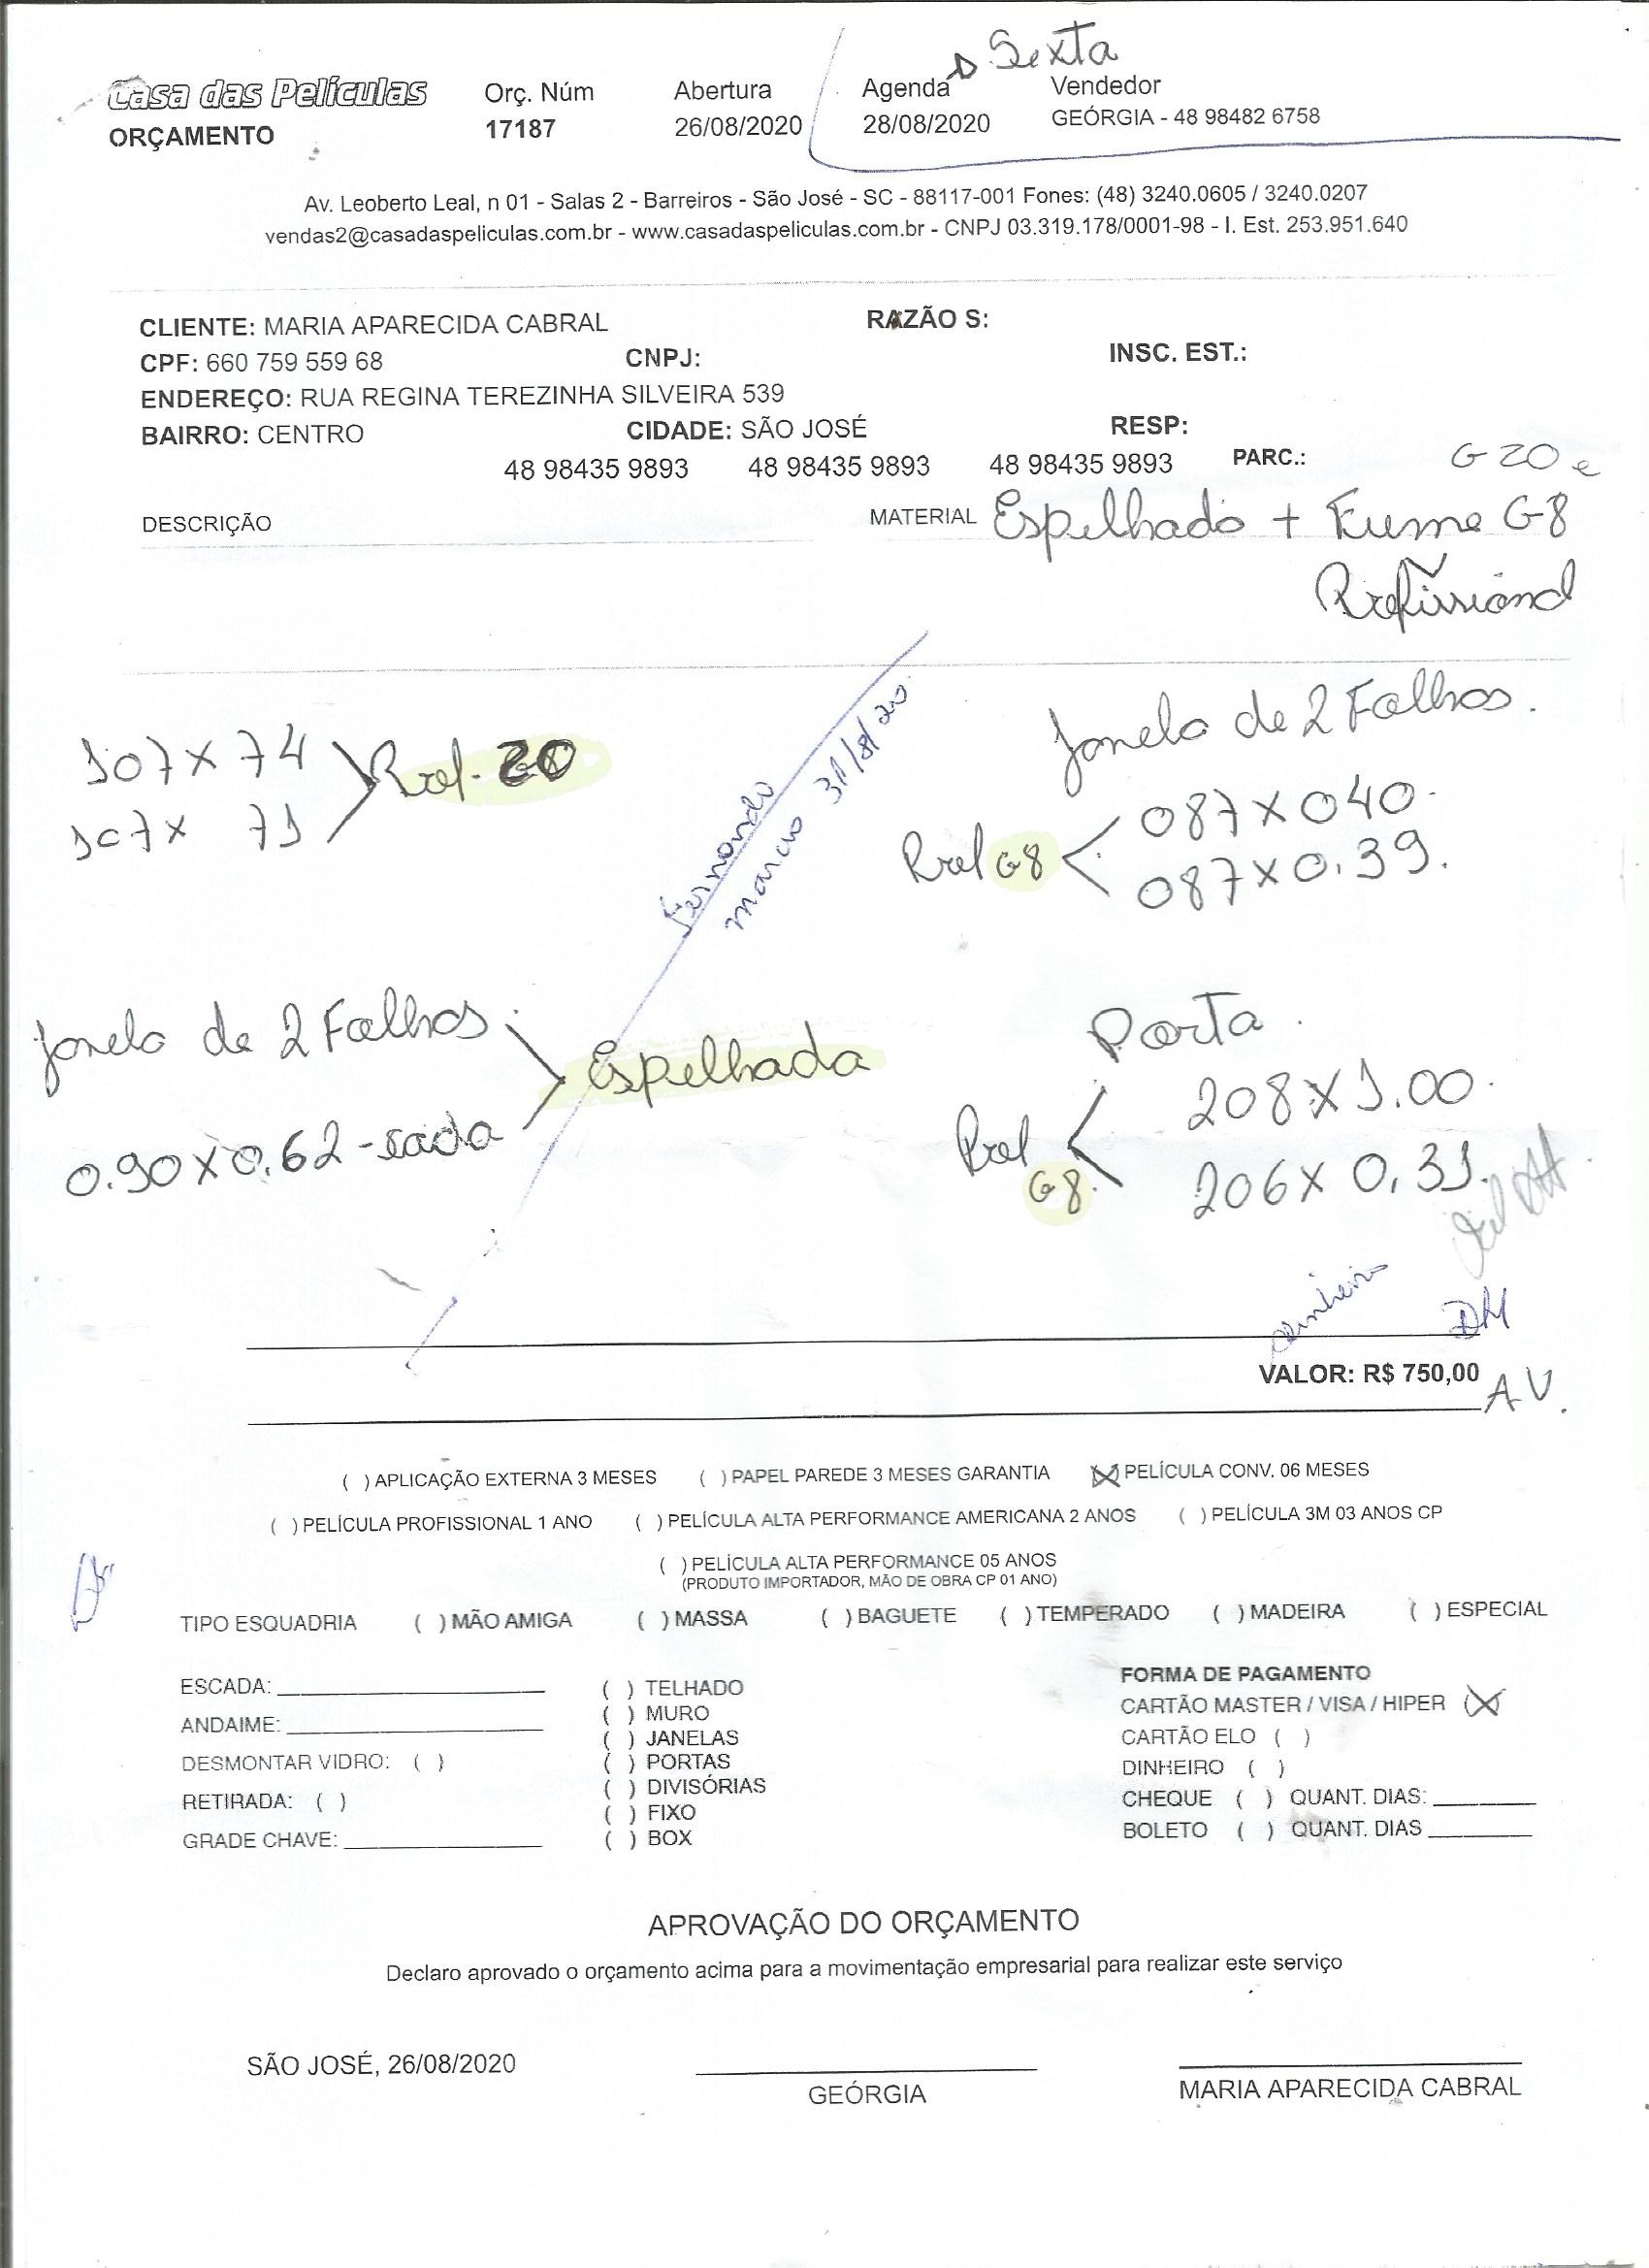 Sexta
Casa das Películas Orç. Núm Abertura Agenda Vendedor
ORÇAMENTO 17187 26/08/2020 28/08/2020 GEÓRGIA - 48 98482 6758
Av. Leoberto Leal, n 01 - Salas 2 - Barreiros - São José - SC - 88117-001 Fones: (48) 3240.0605 / 3240.0207
vendas2@casadaspeliculas.com.br - www.casadaspeliculas.com.br - CNPJ 03.319.178/0001-98 - I. Est. 253.951.640
CLIENTE: MARIA APARECIDA CABRAL RAZÃO S:
CPF: 660 759 559 68 CNPJ: INSC. EST.:
ENDEREÇO: RUA REGINA TEREZINHA SILVEIRA 539
BAIRRO: CENTRO CIDADE: SÃO JOSÉ RESP:
48 98435 9893 48 98435 9893 48 98435 9893 PARC.: G20 e
DESCRIÇÃO MATERIAL Espelhado + Fume G8
Profissional
Janela de 2 Folhas.
107 x 74 Prof. 20 087 x 040.
107 x 71 Prof G8 087 x 0.39.
Fernando
marcio 31/8/20
Janela de 2 Folhas. Espelhada Porta.
0.90 x 0.62 - cada Prof G8. 208 x 1.00.
206 x 0,31.
dinheiro DM
VALOR: R$ 750,00 A V.
( ) APLICAÇÃO EXTERNA 3 MESES ( ) PAPEL PAREDE 3 MESES GARANTIA (X) PELÍCULA CONV. 06 MESES
( ) PELÍCULA PROFISSIONAL 1 ANO ( ) PELÍCULA ALTA PERFORMANCE AMERICANA 2 ANOS ( ) PELÍCULA 3M 03 ANOS CP
( ) PELÍCULA ALTA PERFORMANCE 05 ANOS
(PRODUTO IMPORTADOR, MÃO DE OBRA CP 01 ANO)
TIPO ESQUADRIA ( ) MÃO AMIGA ( ) MASSA ( ) BAGUETE ( ) TEMPERADO ( ) MADEIRA ( ) ESPECIAL
ESCADA: ( ) TELHADO FORMA DE PAGAMENTO
( ) MURO CARTÃO MASTER / VISA / HIPER (X)
ANDAIME: ( ) JANELAS CARTÃO ELO ( )
DESMONTAR VIDRO: ( ) ( ) PORTAS DINHEIRO ( )
RETIRADA: ( ) ( ) DIVISÓRIAS CHEQUE ( ) QUANT. DIAS:
( ) FIXO BOLETO ( ) QUANT. DIAS
GRADE CHAVE: ( ) BOX
APROVAÇÃO DO ORÇAMENTO
Declaro aprovado o orçamento acima para a movimentação empresarial para realizar este serviço
SÃO JOSÉ, 26/08/2020
GEÓRGIA MARIA APARECIDA CABRAL